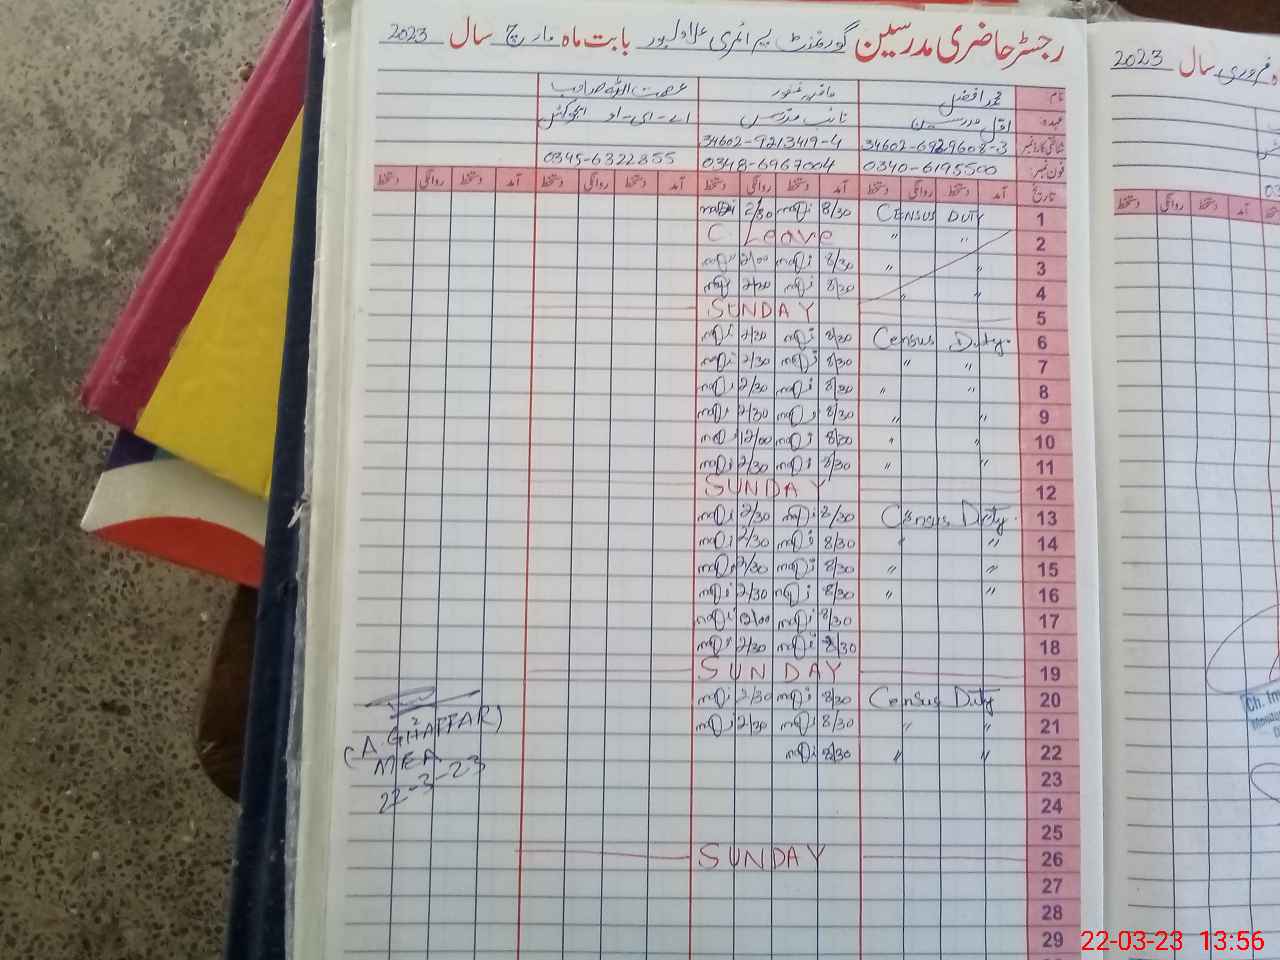 رجسٹر حاضری مدرسین گورنمنٹ پرائمری علاولپور بابت ماہ مارچ سال 2023
نام محمد افضل عصمت اللہ صاحب
عہدہ اول مدرس نائب مدرس اے-ای-او
شناختی کارڈ نمبر 34602-6929608-3 34602-9213419-4
فون نمبر 0340-6195500 0348-6967004 0345-6322855
تاریخ آمد دستخط روانگی دستخط آمد دستخط روانگی دستخط آمد دستخط روانگی دستخط آمد دستخط روانگی دستخط
1 CENSUS DUTY 8/30 2/30
2 " " C. Leave
3 " " 8/30 2/00
4 " " 8/30 2/30
5 SUNDAY
6 Census Duty 8/30 2/30
7 " " 8/30 2/30
8 " " 8/30 2/30
9 " " 8/30 2/30
10 " " 8/30 12/00
11 " " 8/30 2/30
12 SUNDAY
13 Census Duty 8/30 2/30
14 " " 8/30 2/30
15 " " 8/30 2/30
16 " " 8/30 2/30
17 8/30
18 8/30 2/30
19 SUNDAY
20 Census Duty 8/30 2/30
21 " " 8/30 2/30
22 " " 8/30
23
24
25
26 SUNDAY
27
28
29
(A. GHAFFAR)
MEA
22-3-23
فروری سال 2023
دستخط روانگی دستخط آمد دستخط
Ch. Im
22-03-23 13:56